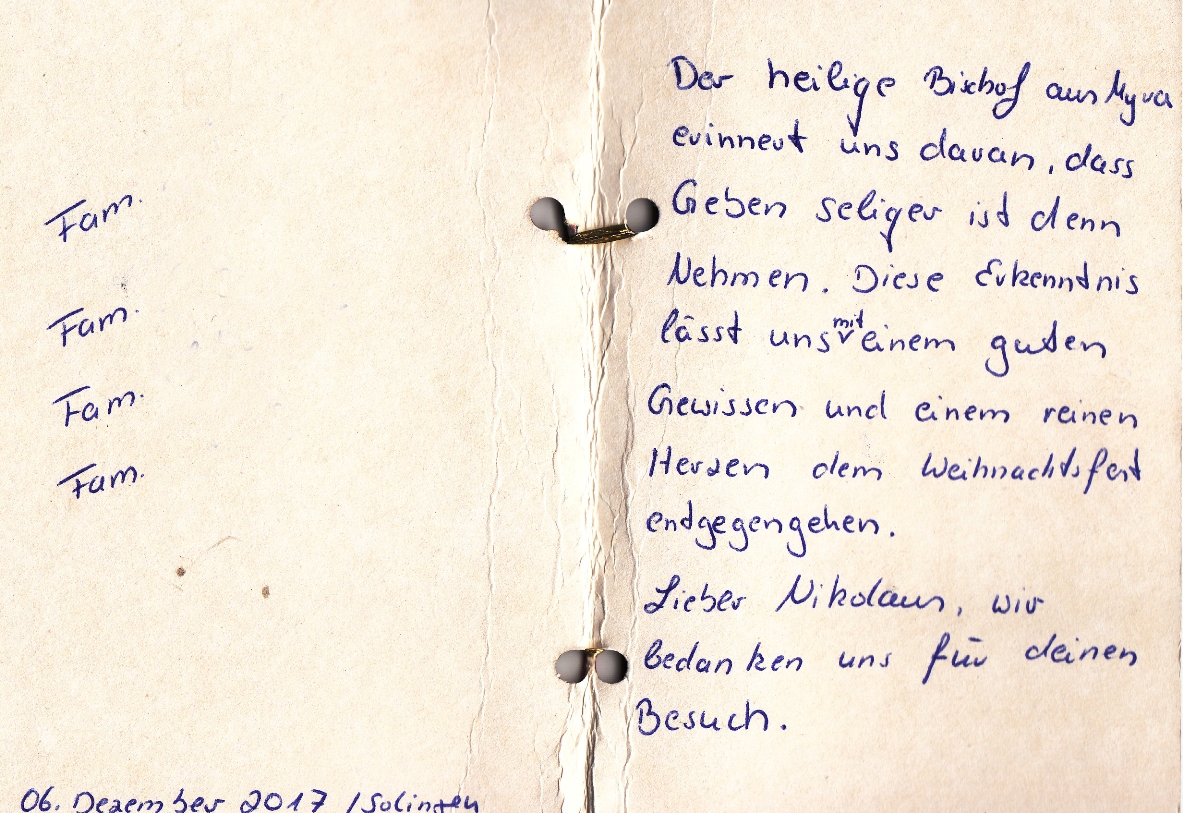 Fam.
Fam.
Fam.
Fam.
06. Dezember 2017 / Solingen
Der heilige Bischof aus Myra
erinnert uns daran, dass
Geben seliger ist denn
Nehmen. Diese Erkenntnis
lässt uns mit einem guten
Gewissen und einem reinen
Herzen dem Weihnachtsfest
entgegengehen.
Lieber Nikolaus, wir
bedanken uns für deinen
Besuch.